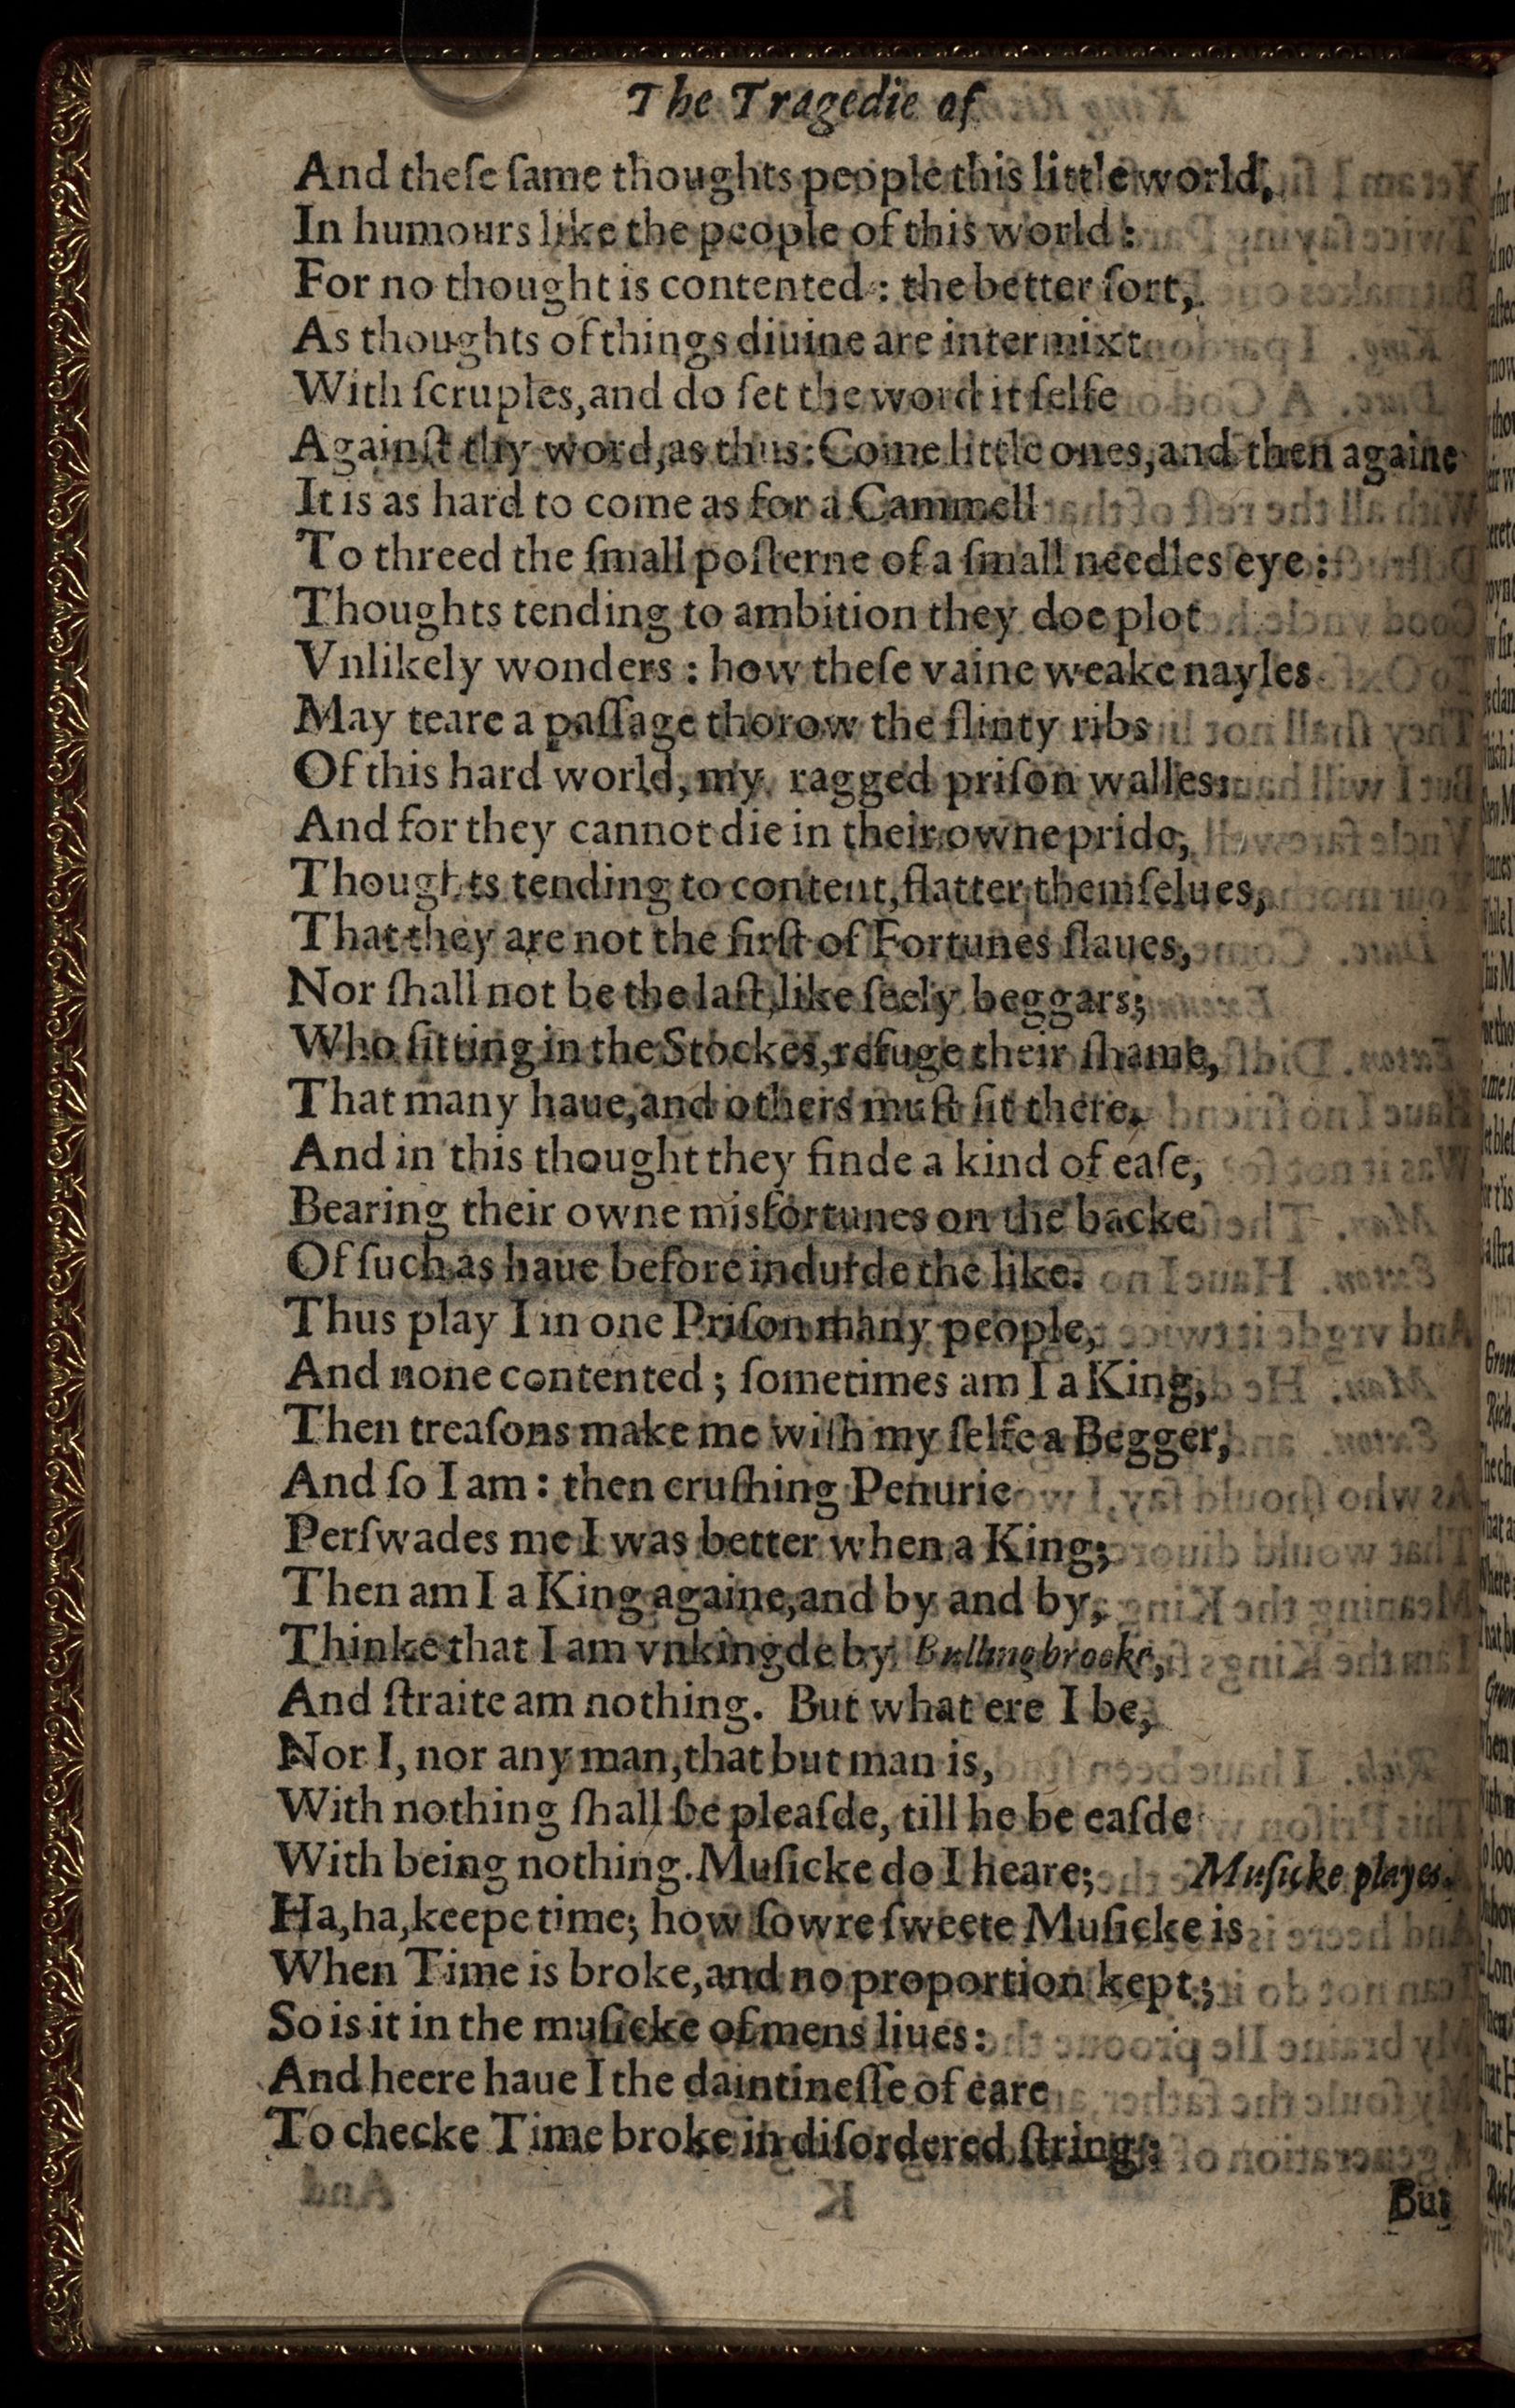 The Tragedie of
And theſe ſame thoughts people this little world,
In humours like the people of this world:
For no thought is contented: the better ſort,
As thoughts of things diuine are intermixt
With ſcruples, and do ſet the word it ſelfe
Againſt thy word, as thus: Come little ones, and then againe
It is as hard to come as for a Cammell
To threed the ſmall poſterne of a ſmall needles eye:
Thoughts tending to ambition they doe plot
Vnlikely wonders: how theſe vaine weake nayles
May teare a paſſage thorow the flinty ribs
Of this hard world, my ragged priſon walles:
And for they cannot die in their owne pride,
Thoughts tending to content, flatter themſelues,
That they are not the firſt of Fortunes ſlaues,
Nor ſhall not be the laſt, like ſeely beggars;
Who ſitting in the Stockes, refuge their ſhame,
That many haue, and others muſt ſit there,
And in this thought they finde a kind of eaſe,
Bearing their owne misfortunes on the backe
Of ſuch as haue before indurde the like.
Thus play I in one Priſon many people,
And none contented; ſometimes am I a King,
Then treaſons make me wiſh my ſelfe a Begger,
And ſo I am: then cruſhing Penurie
Perſwades me I was better when a King;
Then am I a King againe, and by and by,
Thinke that I am vnkingde by Bullingbrooke,
And ſtraite am nothing. But what ere I be,
Nor I, nor any man, that but man is,
With nothing ſhall be pleaſde, till he be eaſde
With being nothing. Muſicke do I heare; Muſicke playes.
Ha, ha, keepe time; how ſowre ſweete Muſicke is
When Time is broke, and no proportion kept;
So is it in the muſicke of mens liues:
And heere haue I the daintineſſe of eare
To checke Time broke in diſordered ſtring:
But